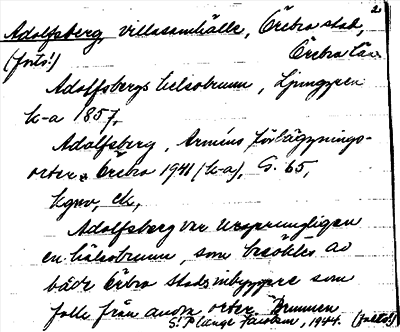 2
Adolfsberg, villasamhälle, Örebro stad,
(forts!) Örebro län
Adolfsbergs helsobrunn, Ljunggren
k-a 1857,
Adolfsberg, Arméns förläggnings-
orter, Örebro 1941 (k-a), G. 65,
kgnv, ek,
Adolfsberg var ursprungligen
en hälsobrunn, som besöktes av
både Örebro stads inbyggare som
folk från andra orter. Brunnen
S. P. Länge, 1944. (forts!)